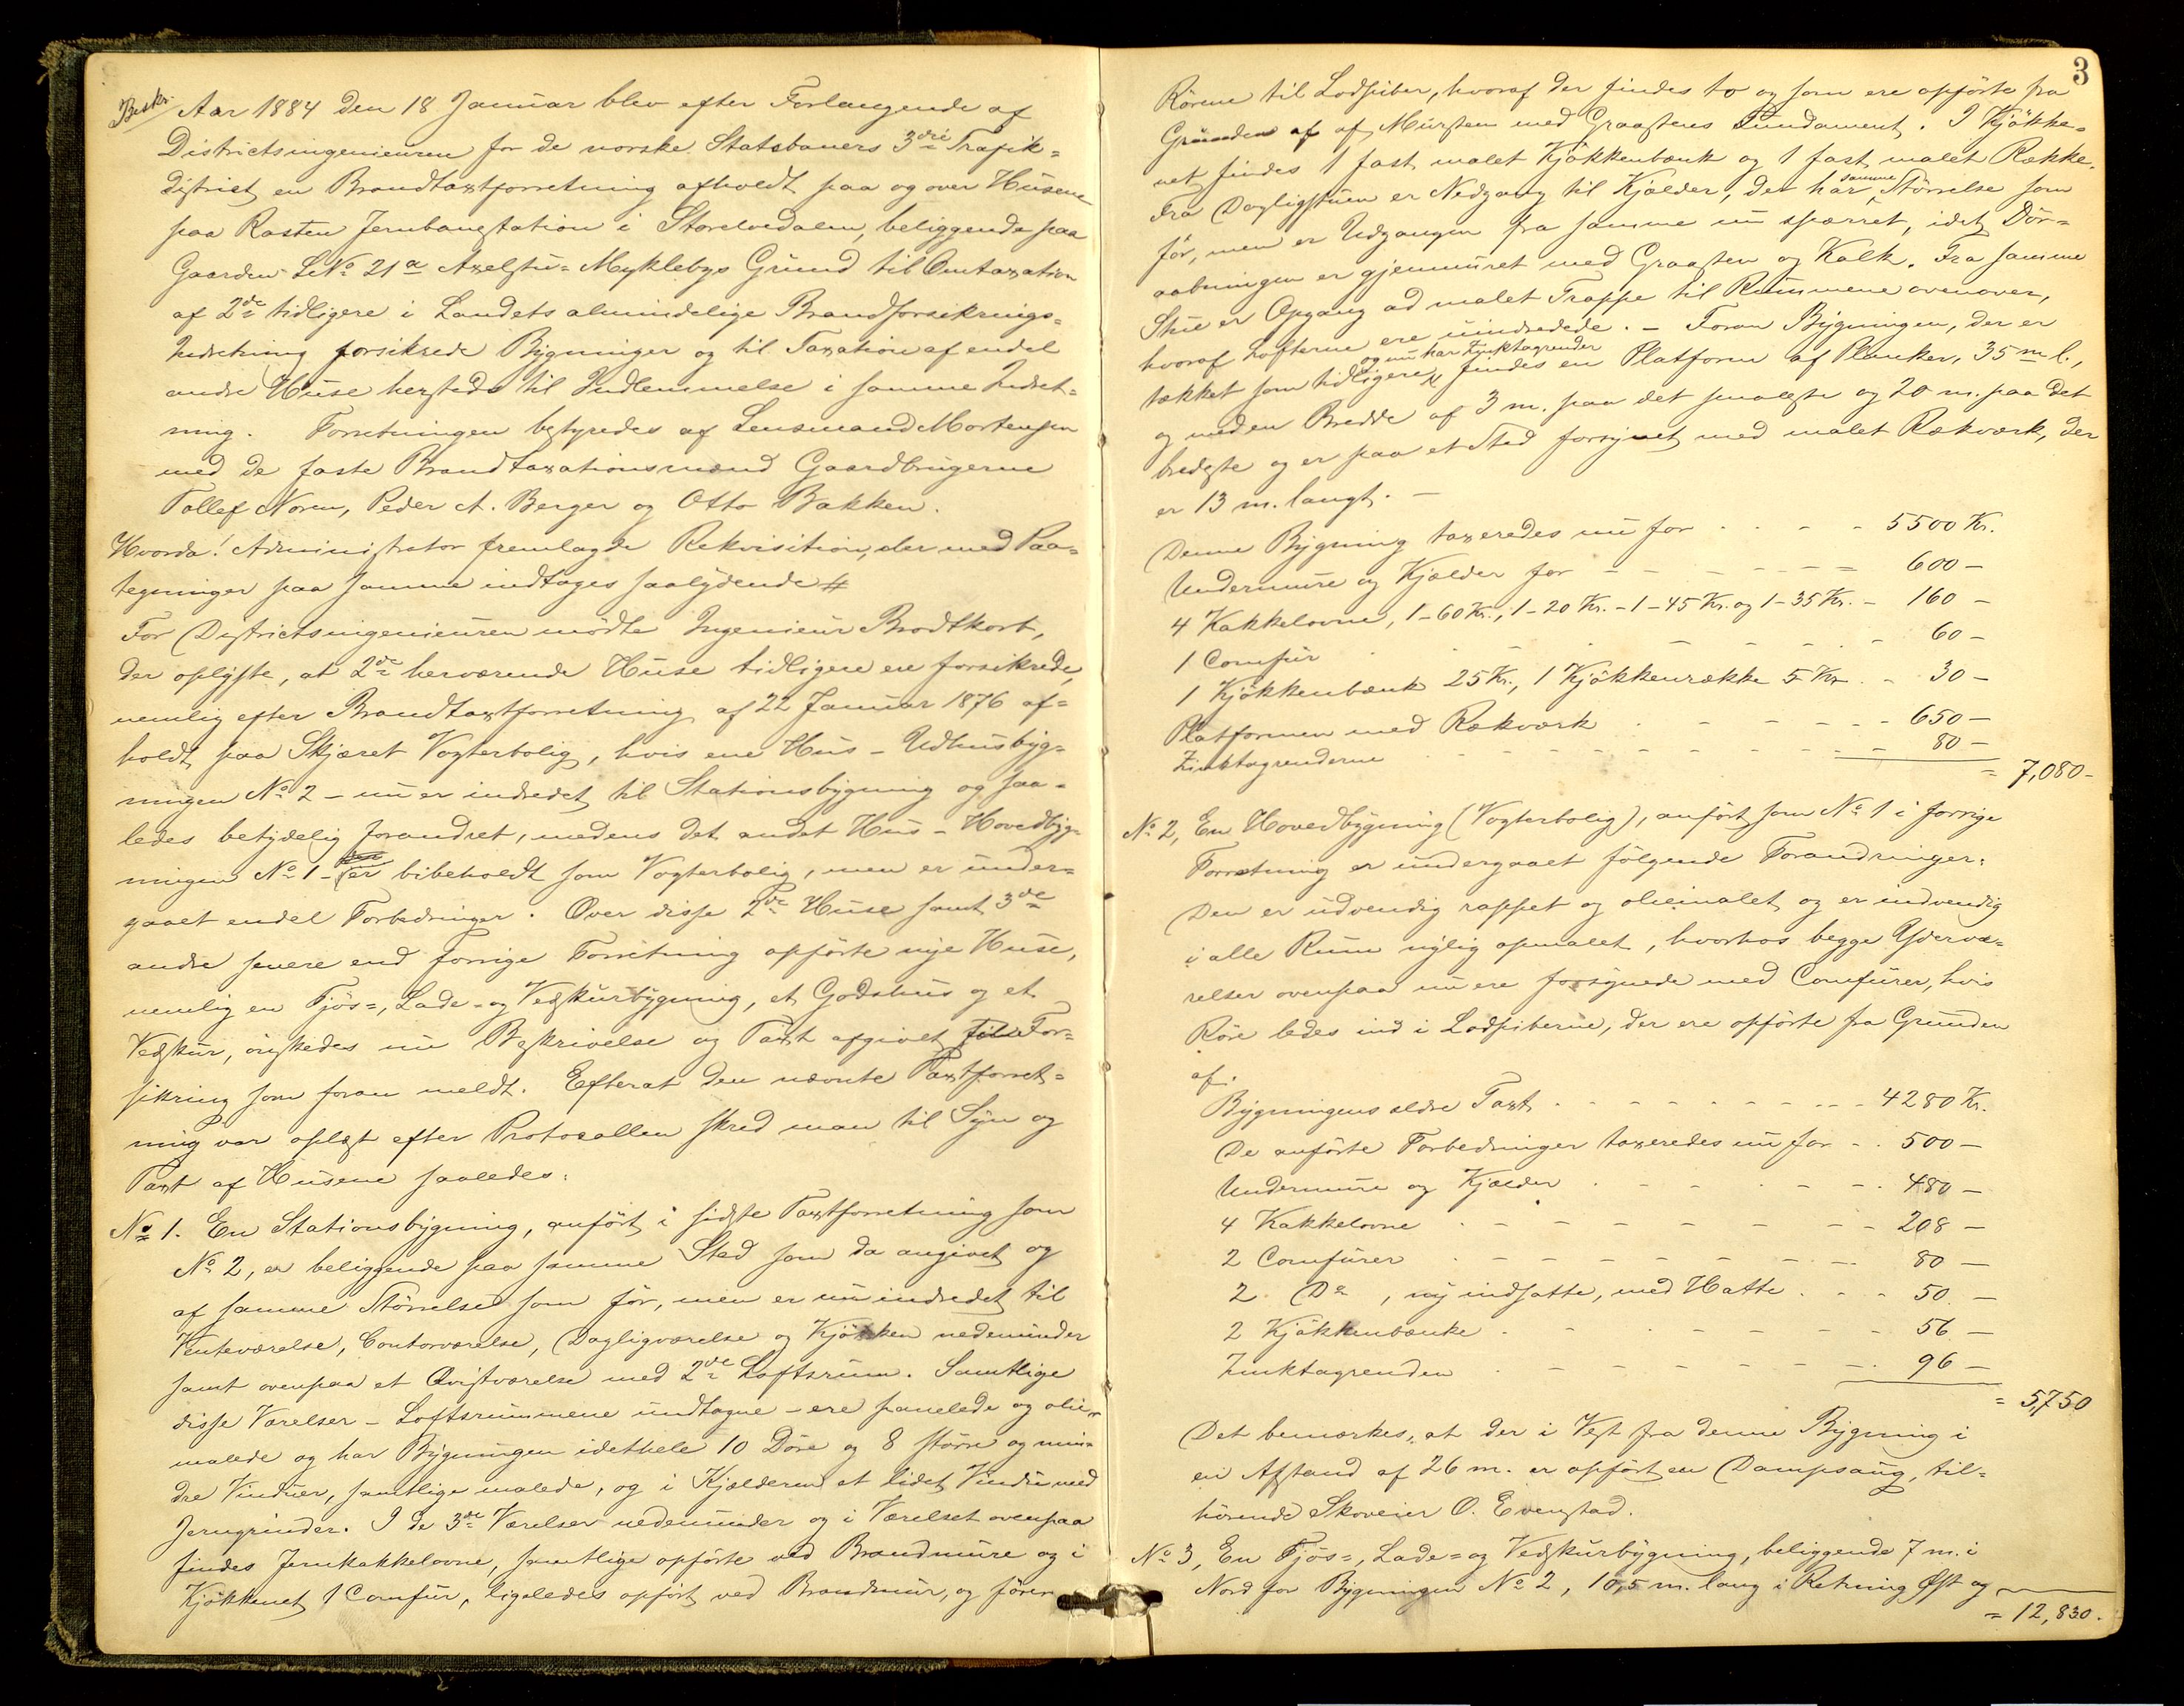 Beskr.
Aar 1884 den 18 Januar blev efter Forlangende af
Districtsingenieuren for de norske Statsbaners 3die Trafik-
district en Brandtaxtforretning afholdt paa og over Husene
paa Rasten Jernbanestation i Storelvedalen, beliggende paa
Gaarden LNo 21a Axelstu-Myklebys Grund til Omtaxation
af 2de tidligere i Landets almindelige Brandforsikrings-
Indretning forsikrede Bygninger og til Taxation af endel
andre Huse hersteds til Indlemmelse i samme Indret-
ning. Forretningen bestyredes af Lensmand Mortensen
med de faste Brandtaxationsmænd Gaardbrugerne
Tollef Noren, Peder A. Berger og Otto Bakken.
Hvorda! Administrator fremlagde Rekvisition, der med Paa-
tegninger paa samme indtages saalydende #
For Districtsingenieuren mødte Ingenieur Brodtkorb,
der oplyste, at 2de herværende Huse tidligere ere forsikrede,
nemlig efter Brandtaxtforretning af 22 Januar 1876 af-
holdt paa Skjæret Vogterbolig, hvis ene Hus - Udhusbyg-
ningen No 2 - nu er indredet til Stationsbygning og saa-
ledes betydelig forandret, medens det andet Hus - Hovedbyg-
ningen No 1 - er bibeholdt som Vogterbolig, men er under-
gaaet endel Forbedringer. Over disse 2de Huse samt 3de
andre senere end forrige Forretning opførte nye Huse,
nemlig en Fjøs-, Lade- og Vedskurbygning, et Godshus og et
Vedskur, ønskedes nu Beskrivelse og Taxt afgivet til For-
sikring som foran meldt. Efterat den nævnte Taxtforret-
ning var oplæst efter Protocollen skred man til Syn og
Taxt af Husene saaledes:
No 1. En Stationsbygning, anført i sidste Taxtforretning som
No 2, er beliggende paa samme Sted som da angivet og
af samme Størrelse som før, men er nu indredet til
Venteværelse, Contorværelse, Dagligværelse og Kjøkken nedenunder
samt ovenpaa et Qvistværelse med 2de Loftsrum. Samtlige
disse Værelser - Loftsrummene undtagne - ere panelede og olie-
malede og har Bygningen idethele 10 Døre og 8 større og min-
dre Vinduer, samtlige malede, og i Kjælderen et lidet Vindu med
Jerngrinder. I de 3de Værelser nedenunder og i Værelset ovenpaa
findes Jernkakkelovne, samtlige opførte ved Brandmure og i
Kjøkkenet 1 Comfur, ligeledes opført ved Brandmur, og fører
3
Rørene til Lodpiber, hvoraf der findes to og som ere opførte fra
Grunden af af Mursten med Graastens Fundament. I Kjøkke-
net findes 1 fast malet Kjøkkenbænk og 1 fast malet Række.
Fra Dagligstuen er Nedgang til Kjælder, der har samme Størrelse som
før, men er Udgangen fra samme nu spærret, idet Dør-
aabningen er gjenmuret med Graasten og Kalk. Fra samme
Stue er Opgang ad malet Trappe til Rummene ovenover,
hvoraf Lofterne ere uindredede. - Foran Bygningen, der er
tækket som tidligere og nu har Zinktagrender, findes en Platform af Planker, 35 m l.,
og med en Bredde af 3 m. paa det smaleste og 20 m. paa det
bredeste og er paa et Sted forsynet med malet Rækværk, der
er 13 m. langt. -
Denne Bygning taxeredes nu for - - - - 5500 Kr.
Undermure og Kjælder for - - - - - - 600 -
4 Kakkelovne, 1 - 60 Kr., 1 - 20 Kr. - 1 - 45 Kr. og 1 - 35 Kr. - 160 -
1 Comfur - - - - - - 60 -
1 Kjøkkenbænk 25 Kr., 1 Kjøkkenrække 5 Kr - - 30 -
Platformen med Rækværk - - - - - - 650 -
Zinktagrenderne - - - - - - 80 -
= 7,080 -
No 2, En Hovedbygning (Vogterbolig), anført som No 1 i forrige
Forretning er undergaaet følgende Forandringer:
Den er udvendig rappet og oliemalet og er indvendig
i alle Rum nylig opmalet, hvorhos begge Yderværelser
relser ovenpaa nu ere forsynede med Comfurer, hvis
Røre ledes ind i Lodpiberne, der ere opførte fra Grunden
af.
Bygningens ældre Taxt - - - - - - 4280 Kr.
De anførte Forbedringer taxeredes nu for - - 500 -
Undermure og Kjælder - - - - - - 480 -
4 Kakkelovne - - - - - - 208 -
2 Comfurer - - - - - - 80 -
2 Do, ny indsatte, med Hatte - - - 50 -
2 Kjøkkenbænke - - - - - - 56 -
Zinktagrenden - - - - - - 96 -
= 5,750
Det bemærkes, at der i Vest fra denne Bygning i
en Afstand af 26 m. er opført en Dampsaug, til-
hørende Skoveier O. Evenstad.
No 3, En Fjøs-, Lade- og Vedskurbygning, beliggende 7 m. i
Nord for Bygningen No 2, 10,5 m. lang i Retning Øst og
= 12,830.